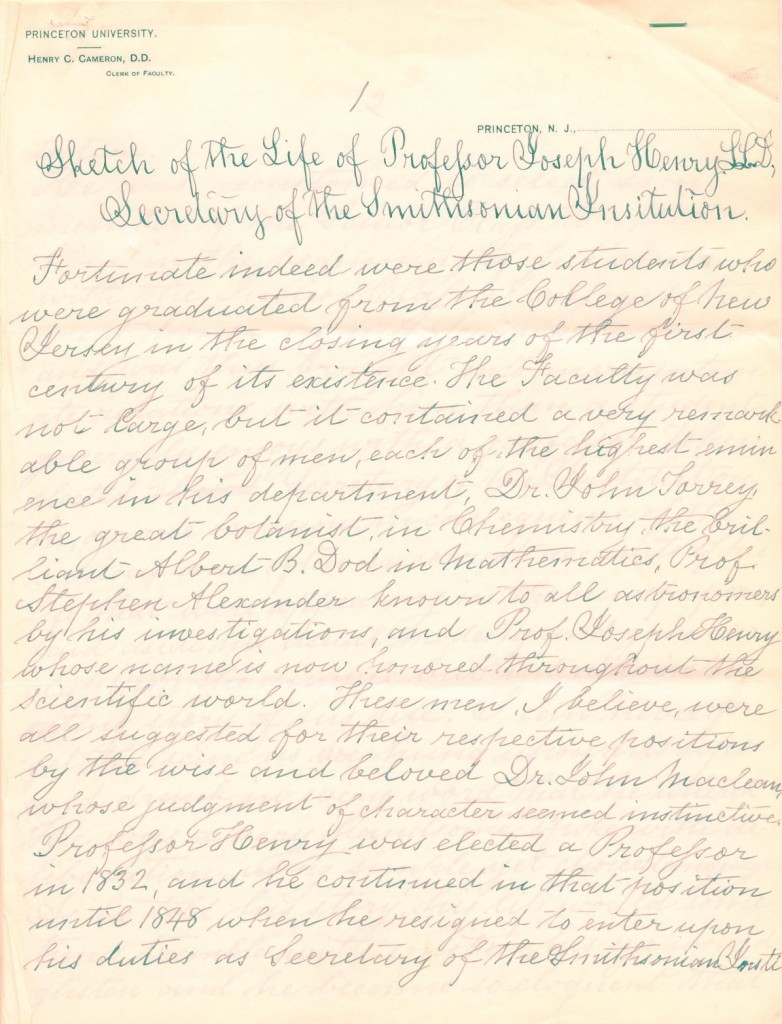 PRINCETON UNIVERSITY.
HENRY C. CAMERON, D.D.
CLERK OF FACULTY.
1
PRINCETON, N. J.,
Sketch of the Life of Professor Joseph Henry LL.D,
Secretary of the Smithisonian Insitution.
Fortunate indeed were those students who
were graduated from the College of New
Jersey in the closing years of the first
century of its existence. The Faculty was
not large, but it contained a very remark
able group of men, each of the highest emin
ence in his department, Dr. John Torrey,
the great botanist, in Chemistry, the bril-
liant Albert B. Dod in Mathematics, Prof.
Stephen Alexander known to all astronomers
by his investigations, and Prof. Joseph Henry
whose name is now honored throughout the
scientific world. These men, I believe, were
all suggested for their respective positions
by the wise and beloved Dr. John Maclean,
whose judgment of character seemed instinctive.
Professor Henry was elected a Professor
in 1832, and he continued in that position
until 1848 when he resigned to enter upon
his duties as Secretary of the Smithsonian Insti